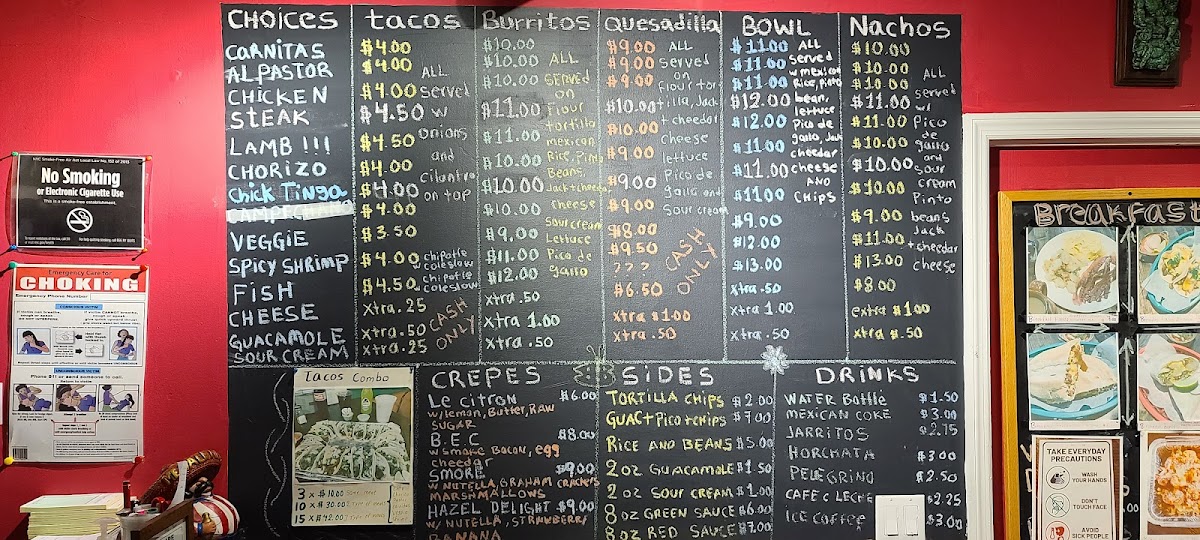 CHOICES
CARNITAS
AL PASTOR
CHICKEN
STEAK
LAMB !!!
CHORIZO
Chick Tinga
VEGGIE
SPICY SHRIMP
FISH
CHEESE
GUACAMOLE
SOUR CREAM
tacos
$4.00
$4.00
$4.00
$4.50
$4.50
$4.00
$4.00
$4.00
$3.50
$4.00
$4.50
xtra .25
xtra .50
xtra .25
ALL
served
w
onions
and
cilantro
on top
chipotle
w coleslow
chipotle
coleslow
CASH
ONLY
Burritos
$10.00
$10.00
$10.00
$11.00
$11.00
$10.00
$10.00
$10.00
$9.00
$11.00
$12.00
xtra .50
xtra 1.00
xtra .50
ALL
SERVED
on
Flour
tortilla
mexican
Rice, Pinto
Beans,
Jack+cheedar
cheese
sour cream
Lettuce
Pico de
gallo
Quesadilla
$9.00
$9.00
$9.00
$10.00
$10.00
$9.00
$9.00
$9.00
$8.00
$9.50
???
$6.50
xtra $1.00
xtra .50
ALL
served
on
Flour tor
tilla, Jack
+ cheedar
cheese
lettuce
Pico de
gallo and
sour cream
CASH
ONLY
BOWL
$11.00
$11.00
$11.00
$12.00
$12.00
$11.00
$11.00
$11.00
$9.00
$12.00
$13.00
xtra .50
xtra 1.00
xtra .50
ALL
served
w mexican
Rice, Pinto
bean,
lettuce
Pico de
gallo, Jack
cheedar
cheese
AND
CHIPS
Nachos
$10.00
$10.00
$10.00
$11.00
$11.00
$10.00
$10.00
$10.00
$9.00
$11.00
$13.00
$8.00
extra $1.00
xtra $.50
ALL
served
w/
Pico
de
gallo
and
sour
cream
Pinto
beans
Jack
+cheedar
cheese
tacos Combo
3 x $10.00
10 x $30.00
15 x $42.00
CREPES
Le citron $6.00
w/lemon, Butter, RAW
SUGAR
B.E.C $8.00
w/smoke Bacon, egg
cheedar
SMORE $9.00
w/NUTELLA, GRAHAM CRACKERS
MARSHMALLOWS
HAZEL DELIGHT $9.00
w/ NUTELLA, STRAWBERRY
BANANA
SIDES
TORTILLA CHIPS $2.00
GUAC+Pico+chips $7.00
RICE AND BEANS $5.00
2oz GUACAMOLE $1.50
2oz SOUR CREAM $1.00
8oz GREEN SAUCE $6.00
8oz RED SAUCE $7.00
DRINKS
WATER Bottle $1.50
MEXICAN COKE $3.00
JARRITOS $2.75
HORCHATA $3.00
PELEGRINO $2.50
CAFE c LECHE $2.25
ICE COFFEE $3.00
No Smoking
or Electronic Cigarette Use
This is a smoke-free establishment.
Emergency Care for
CHOKING
Emergency Phone Number
CONSCIOUS VICTIM
UNCONSCIOUS VICTIM
Phone 911 or send someone to call.
Breakfast
TAKE EVERYDAY
PRECAUTIONS
WASH
YOUR HANDS
DON'T
TOUCH FACE
AVOID
SICK PEOPLE